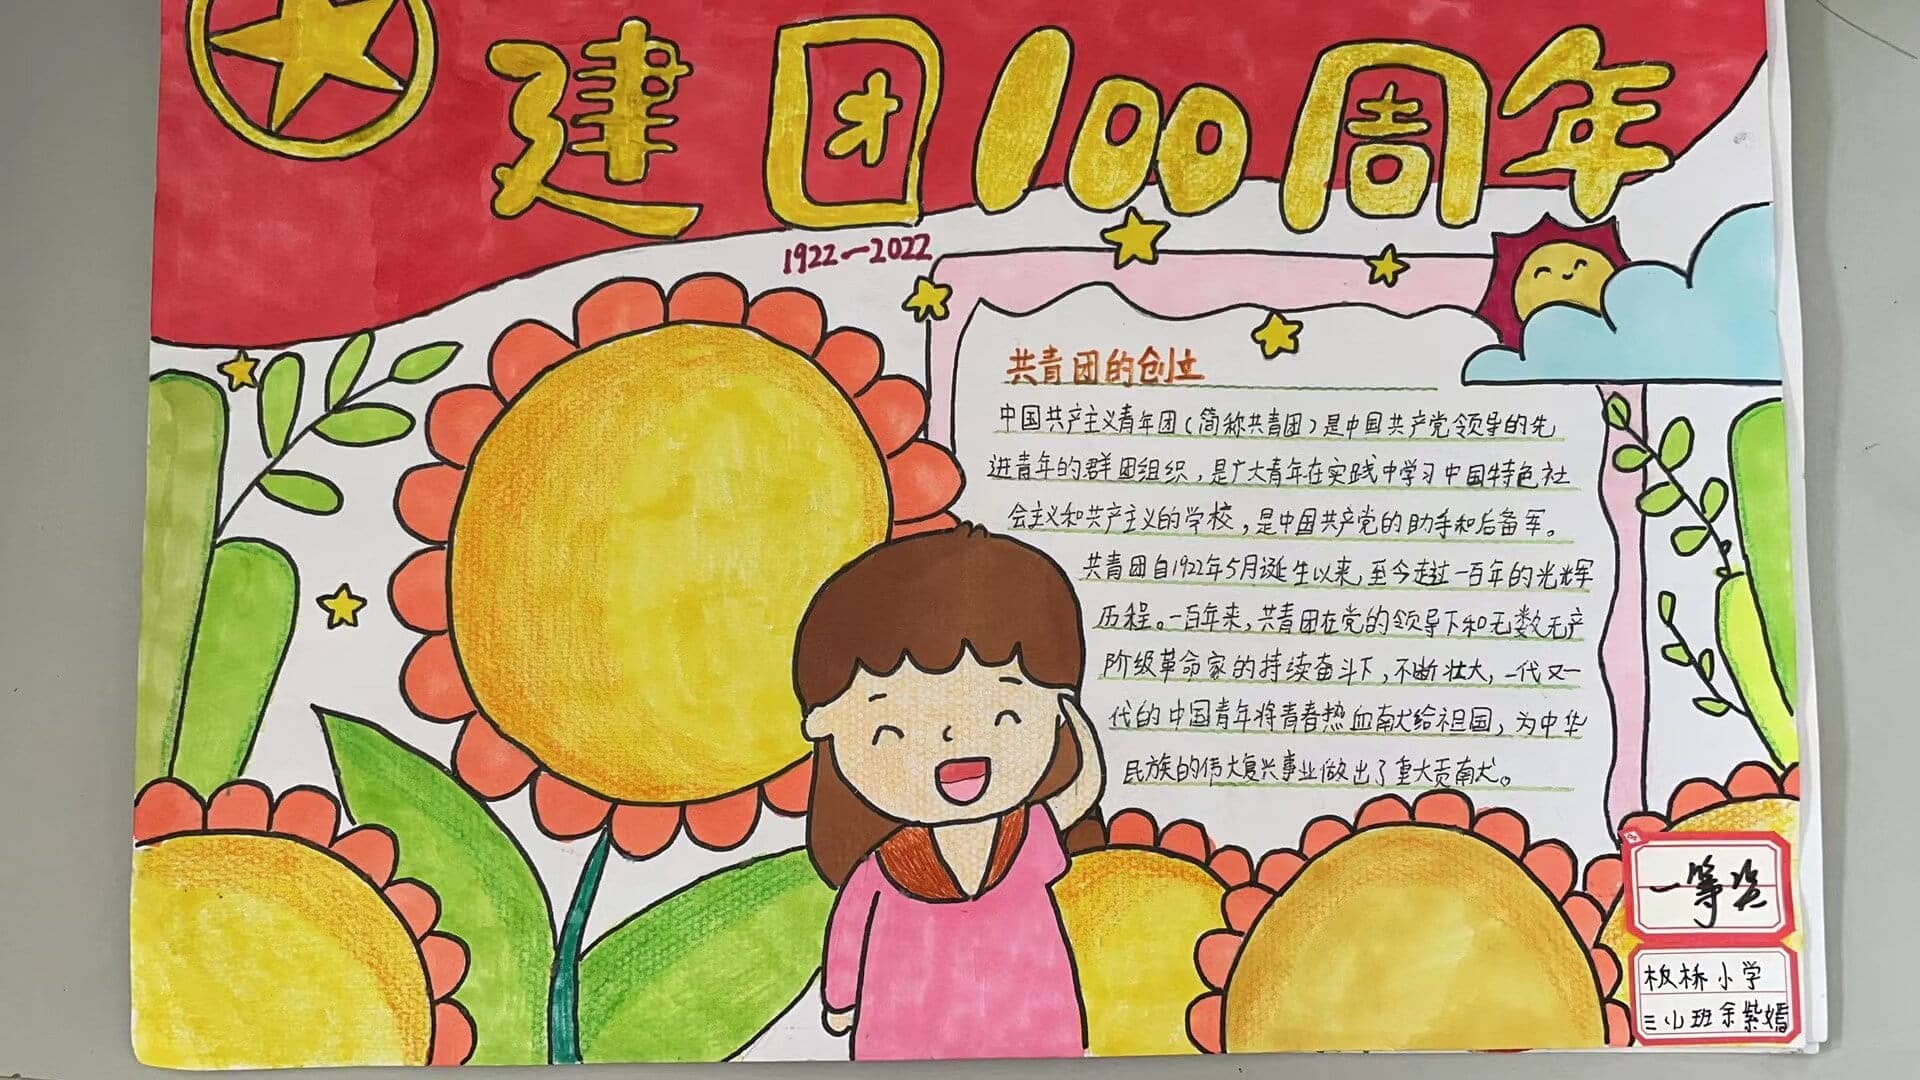 建团100周年
1922—2022
共青团的创立
中国共产主义青年团(简称共青团)是中国共产党领导的先
进青年的群团组织,是广大青年在实践中学习中国特色社
会主义和共产主义的学校,是中国共产党的助手和后备军。
共青团自1922年5月诞生以来,至今走过一百年的光辉
历程。一百年来,共青团在党的领导下和无数无产
阶级革命家的持续奋斗下,不断壮大,一代又一
代的中国青年将青春热血献给祖国,为中华
民族的伟大复兴事业做出了重大贡献。
一等奖
板桥小学
三小班余紫嫣